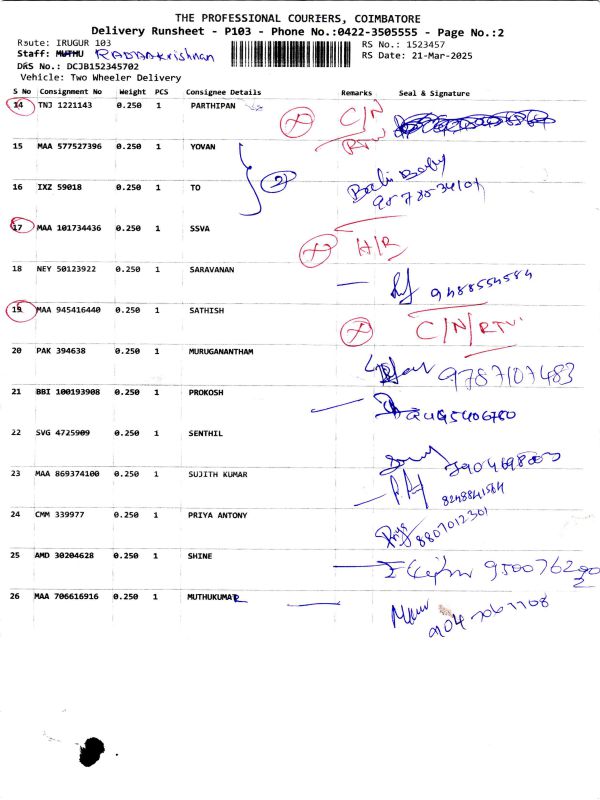 THE PROFESSIONAL COURIERS, COIMBATORE
Delivery Runsheet - P103 - Phone No.:0422-3505555 - Page No.:2
Route: IRUGUR 103
RS No.: 1523457
Staff: MUTHU RADHAKrishnan
RS Date: 21-Mar-2025
DRS No.: DCJB152345702
Vehicle: Two Wheeler Delivery
S No Consignment No Weight PCS Consignee Details Remarks Seal & Signature
14 TNJ 1221143 0.250 1 PARTHIPAN X C/N
RTN
15 MAA 577527396 0.250 1 YOVAN
2
16 IXZ 59018 0.250 1 TO
17 MAA 101734436 0.250 1 SSVA X H/R
18 NEY 50123922 0.250 1 SARAVANAN 9488554584
19 MAA 945416440 0.250 1 SATHISH X C/N/RTN
20 PAK 394638 0.250 1 MURUGANANTHAM 9787107483
21 BBI 100193908 0.250 1 PROKOSH
22 SVG 4725909 0.250 1 SENTHIL
23 MAA 869374100 0.250 1 SUJITH KUMAR 8248841564
24 CMM 339977 0.250 1 PRIYA ANTONY Priya
8807012301
25 AMD 30204628 0.250 1 SHINE
26 MAA 706616916 0.250 1 MUTHUKUMAR